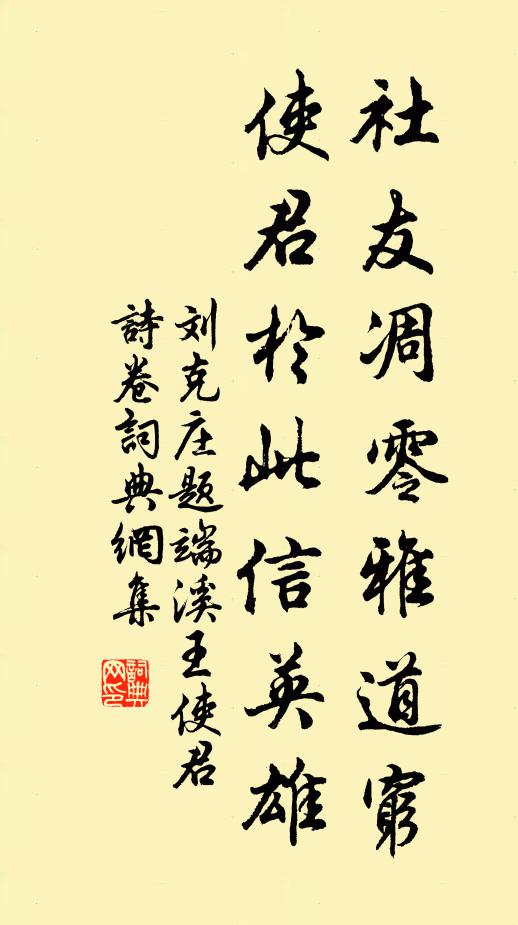 社友凋零雅道窮
使君於此信英雄
刘克庄题端溪王使君
詩卷詞典網集
詞典网印